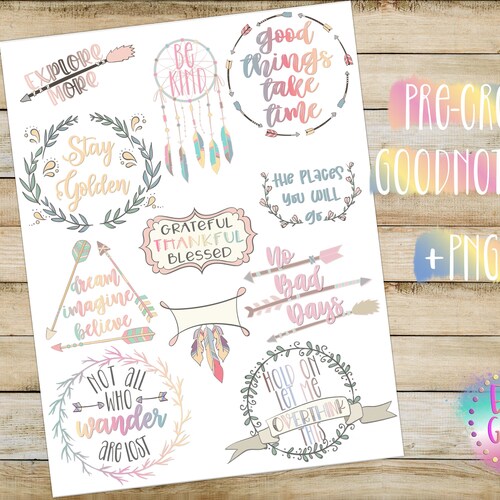 EXPLORE
MORE
BE
KIND
good
things
take
time
Stay
Golden
the places
you will
go
GRATEFUL
THANKFUL
BLESSED
dream
imagine
believe
No
Bad
Days
NOT ALL
WHO
wander
ARE LOST
HOLD ON
LET ME
OVERTHINK
THIS
PRE-CRO
GOODNOT
+PNG